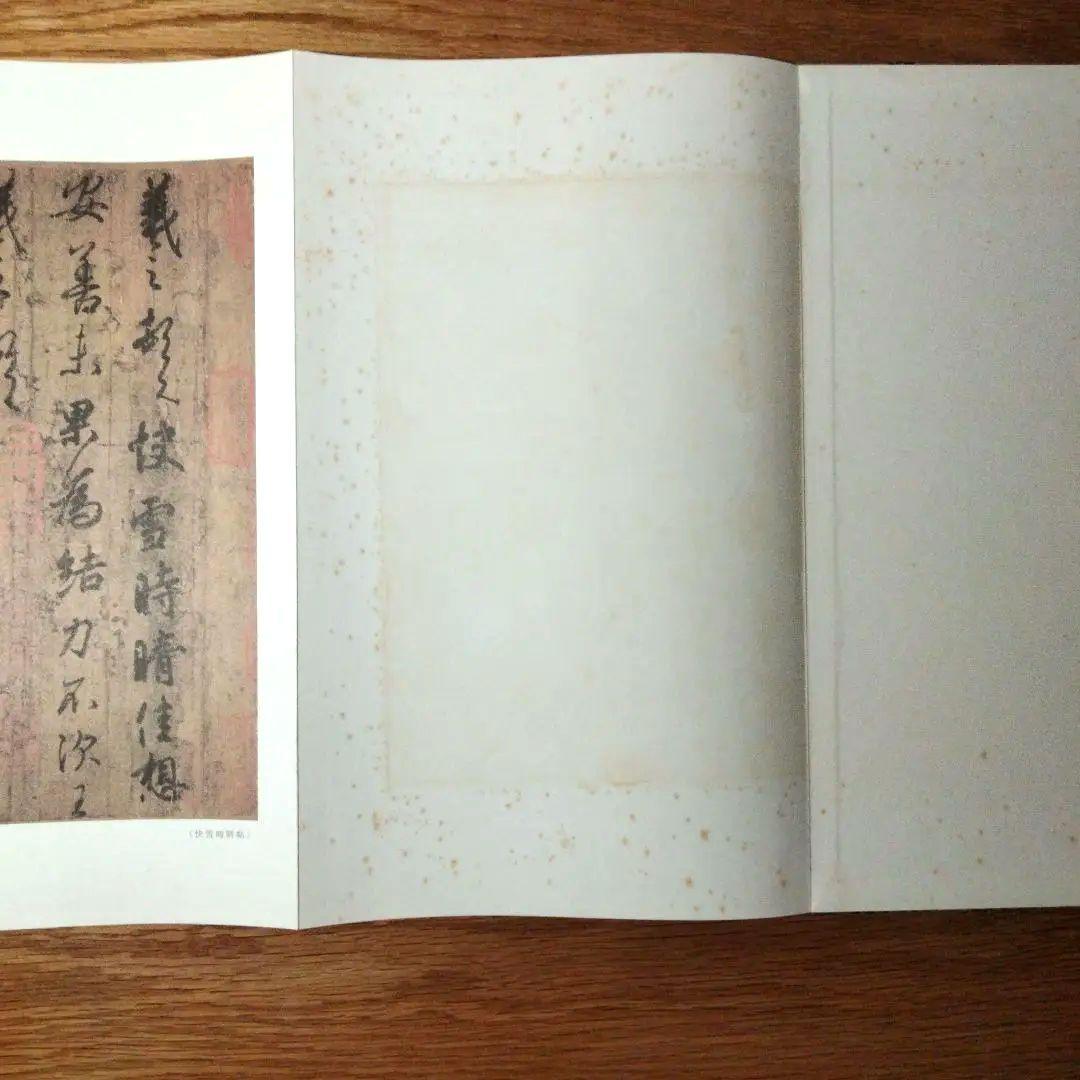 羲之頓首快雪時晴佳想
安善未果為結力不次王
羲之頓首
（快雪時晴帖）